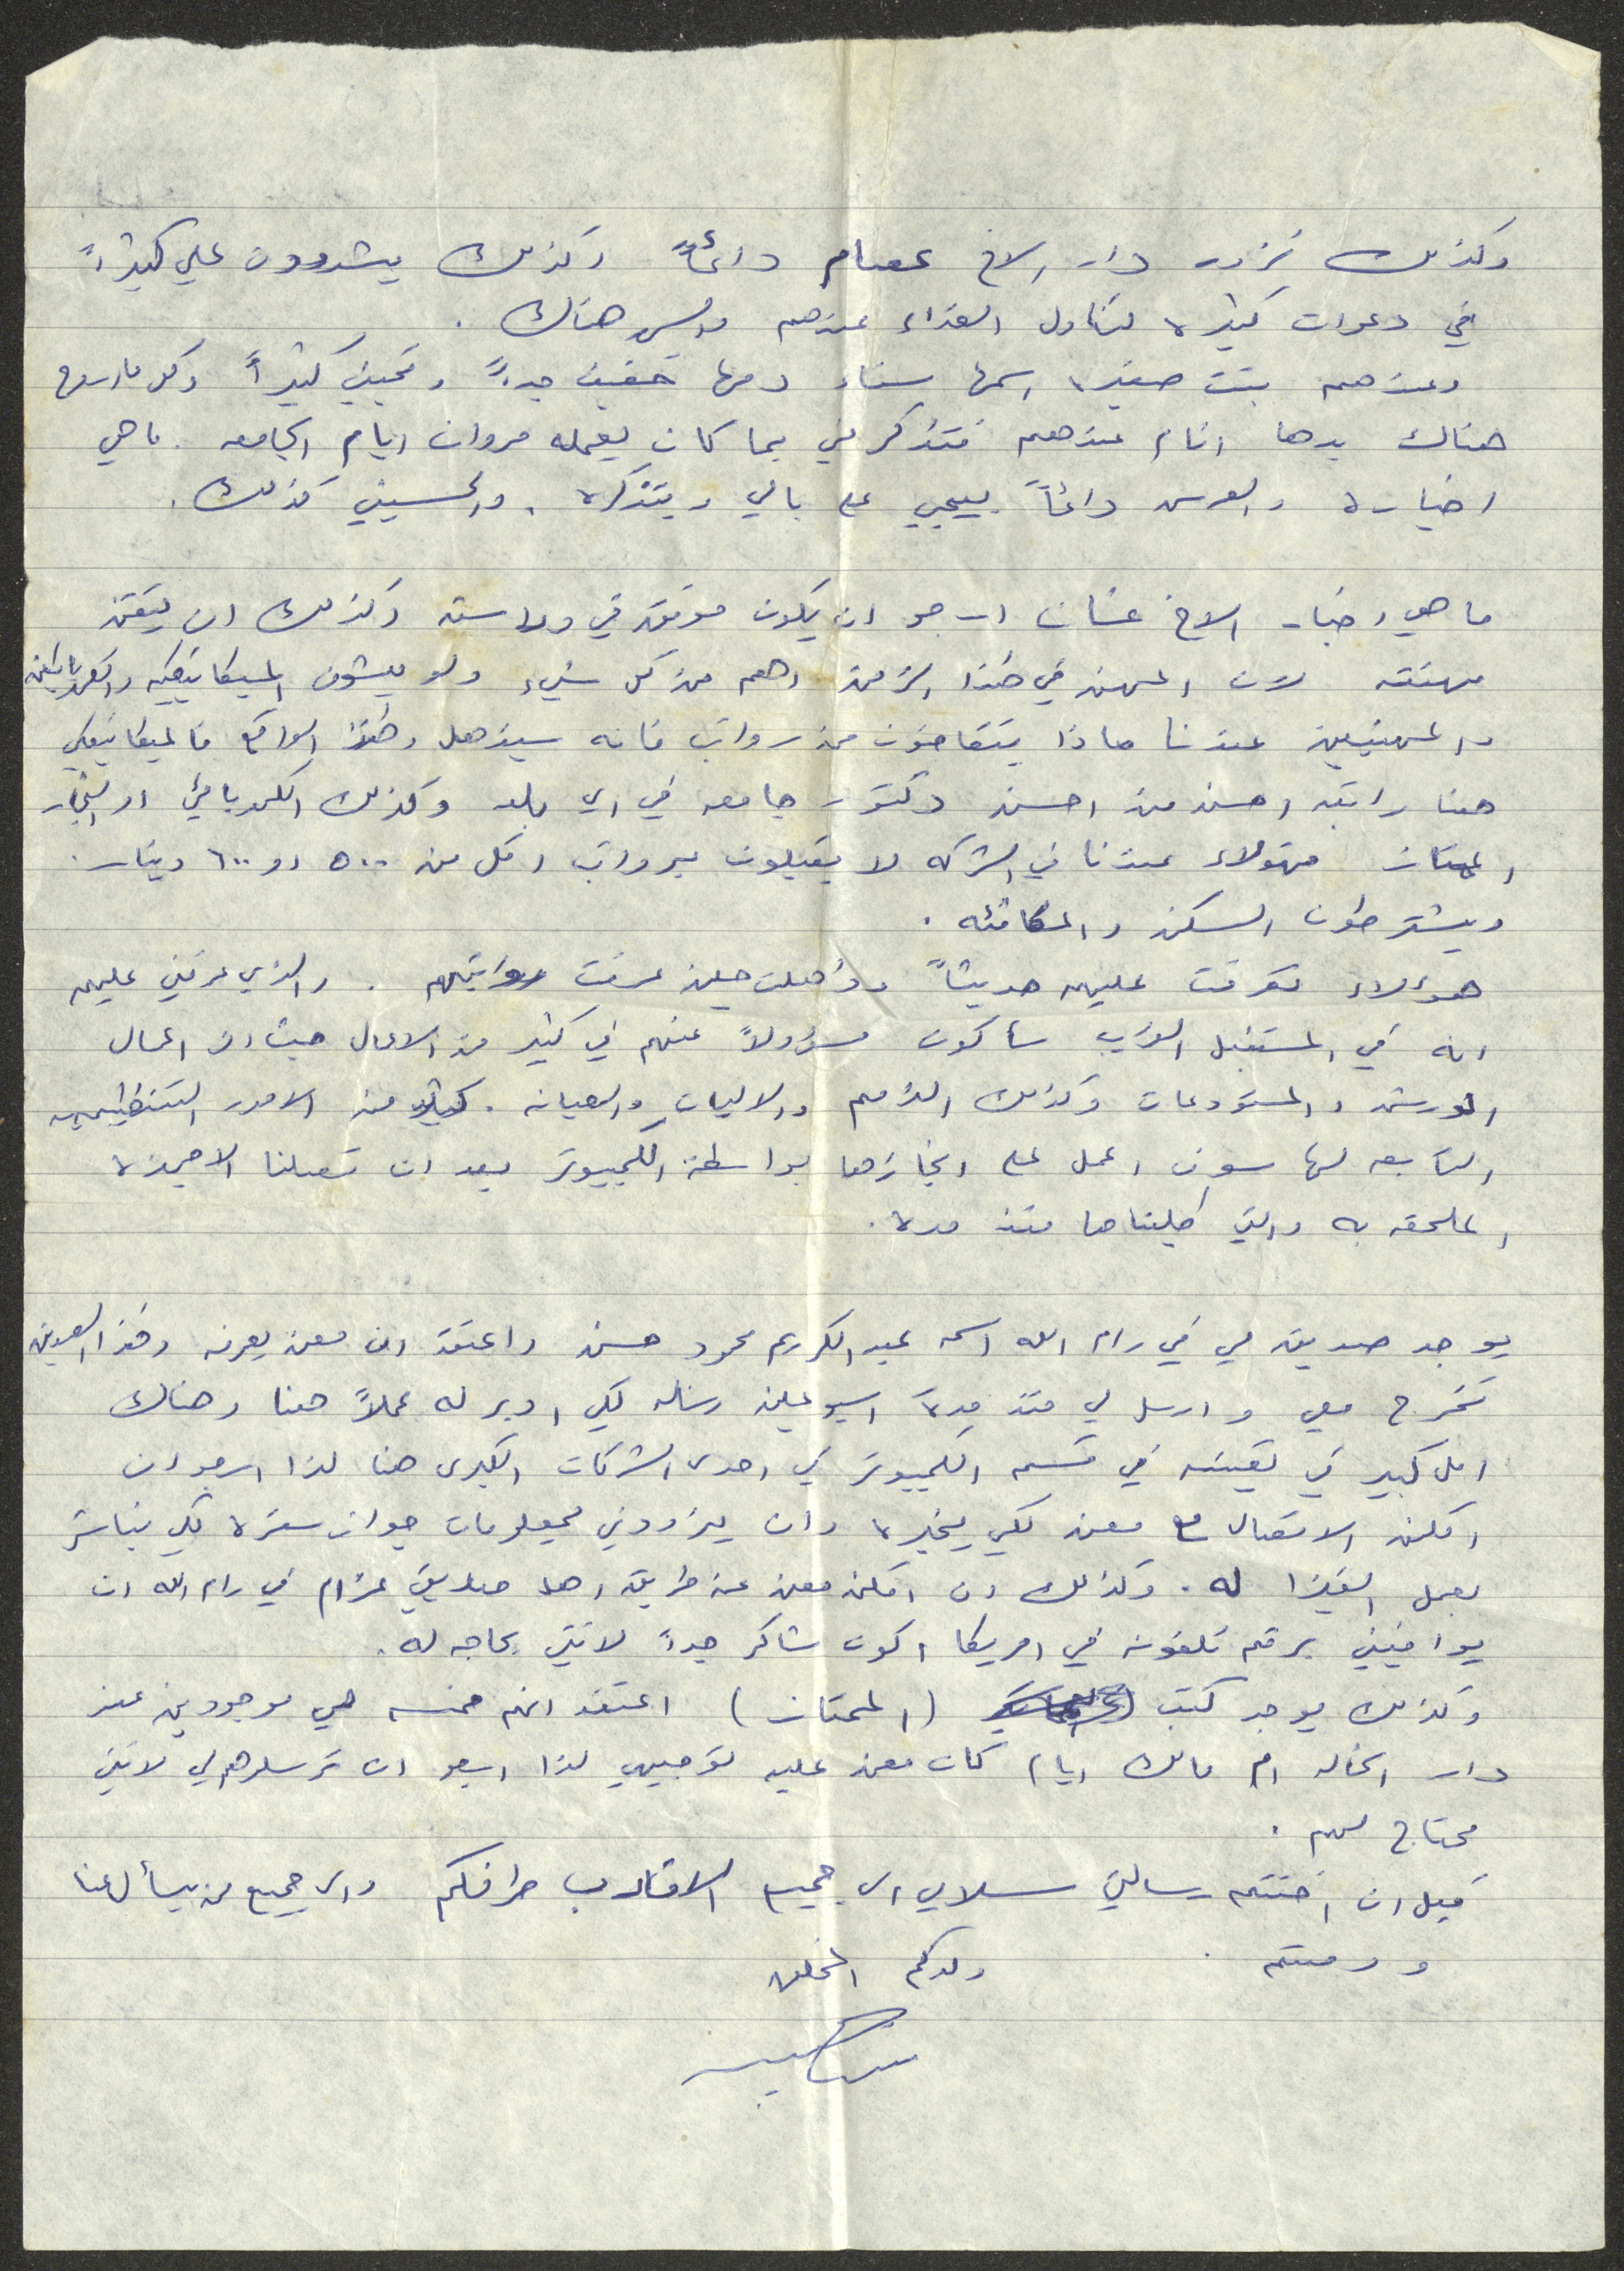 وكذلك نزور دار الاخ عصام دائماً وكذلك يشددون علي كثيراً
في دعوات كثيره لتناول الغذاء عندهم والسهر هناك .
وعندهم بنت صغيره اسمها سناء دمها خفيف جداً وتحبني كثيراً وكل ما اروح
هناك بدها انام عندهم فتذكرني بما كان يعمله مروان ايام الجامعه . ما هي
اخباره والعرس دائماً بييجي على بالي وبتذكره . والحسيني كذلك .
ما هي اخبار الاخ غسان ارجو ان يكون موفق في دراسته وكذلك ان يتقن
مهنته لان المهن في هذا الزمن اهم من كل شيء ولو يشوف الميكانيكيه والكهربائيين
والمهنيين عندنا ماذا يتقاضون من رواتب فانه سيذهل وهذا الواقع فالميكانيكي
هنا راتبه احسن من احسن دكتور جامعه في اي بلد وكذلك الكهربائي او النجار
الممتاز فهؤلاء عندنا في الشركه لا يقبلون برواتب اقل من ٥٠٠ او ٦٠٠ دينار .
ويشترطون السكن والمكافئه .
هؤلاء تعرفت عليهم حديثاً وذهلت حين عرفت رواتبهم . والذي عرفني عليهم
انه في المستقبل القريب سأكون مسؤولاً عنهم في كثير من الاعمال حيث ان اعمال
الورش والمستودعات وكذلك والاليات والصيانه . كثير من الامور التنظيميه
التابعه لها سوف اعمل على انجازها بواسطة الكمبيوتر بعد ان تصلنا الاجهزه
الملحقه به والتي طلبناها منذ مده .
يوجد صديق لي في رام الله اسمه عبد الكريم محمود حسن واعتقد ان معن يعرفه وهذا الصديق
تخرج معي وارسل لي منذ مدة اسبوعين رساله لكي ادبر له عملاً هنا وهناك
امل كبير في تعيينه في قسم الكمبيوتر في احدى الشركات الكبرى هنا لذا ارجو ان
امكن الاتصال مع معن لكي يخبره وان يزودني بمعلومات جواز سفره لكي نباشر
بعمل الفيزا له . وكذلك ان امكن معن عن طريق اهل صديقي عزام في رام الله ان
يوافيني برقم تلفونه في امريكا اكون شاكر جداً لانني بحاجه له .
وكذلك يوجد كتب (الممتاز) اعتقد انهم خمسه هي موجودين عند
دار الخاله ام مالك ايام كان معن عليه توجيهي لذا ارجو ان ترسلوهم لي لانني
محتاج لهم .
قبل ان اختتم رسالتي سلامي الى جميع الاقارب طرفكم والى جميع من يسأل عنا
ودمتم . ولدكم المخلص